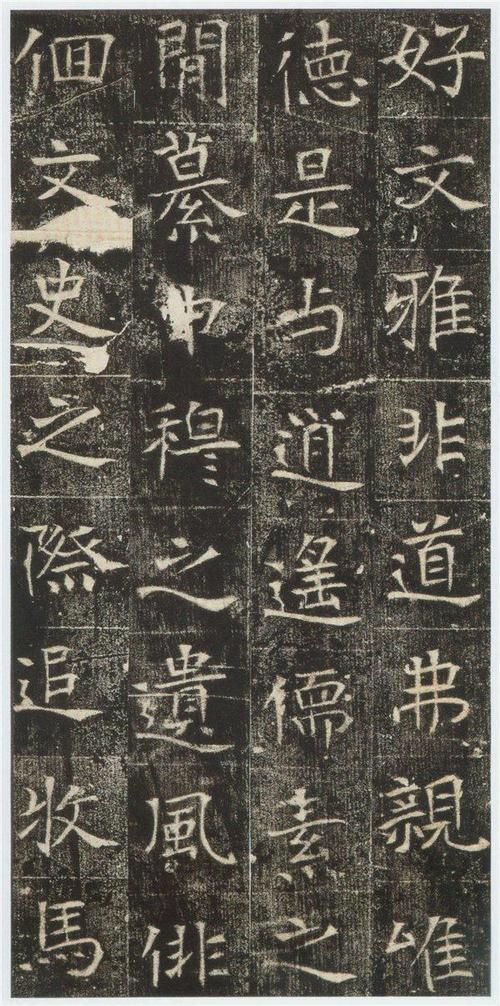 好文雅非道弗親唯
徳是与逍遙儒素之
閒慕申穆之遺風徘
佪文史之際追收馬